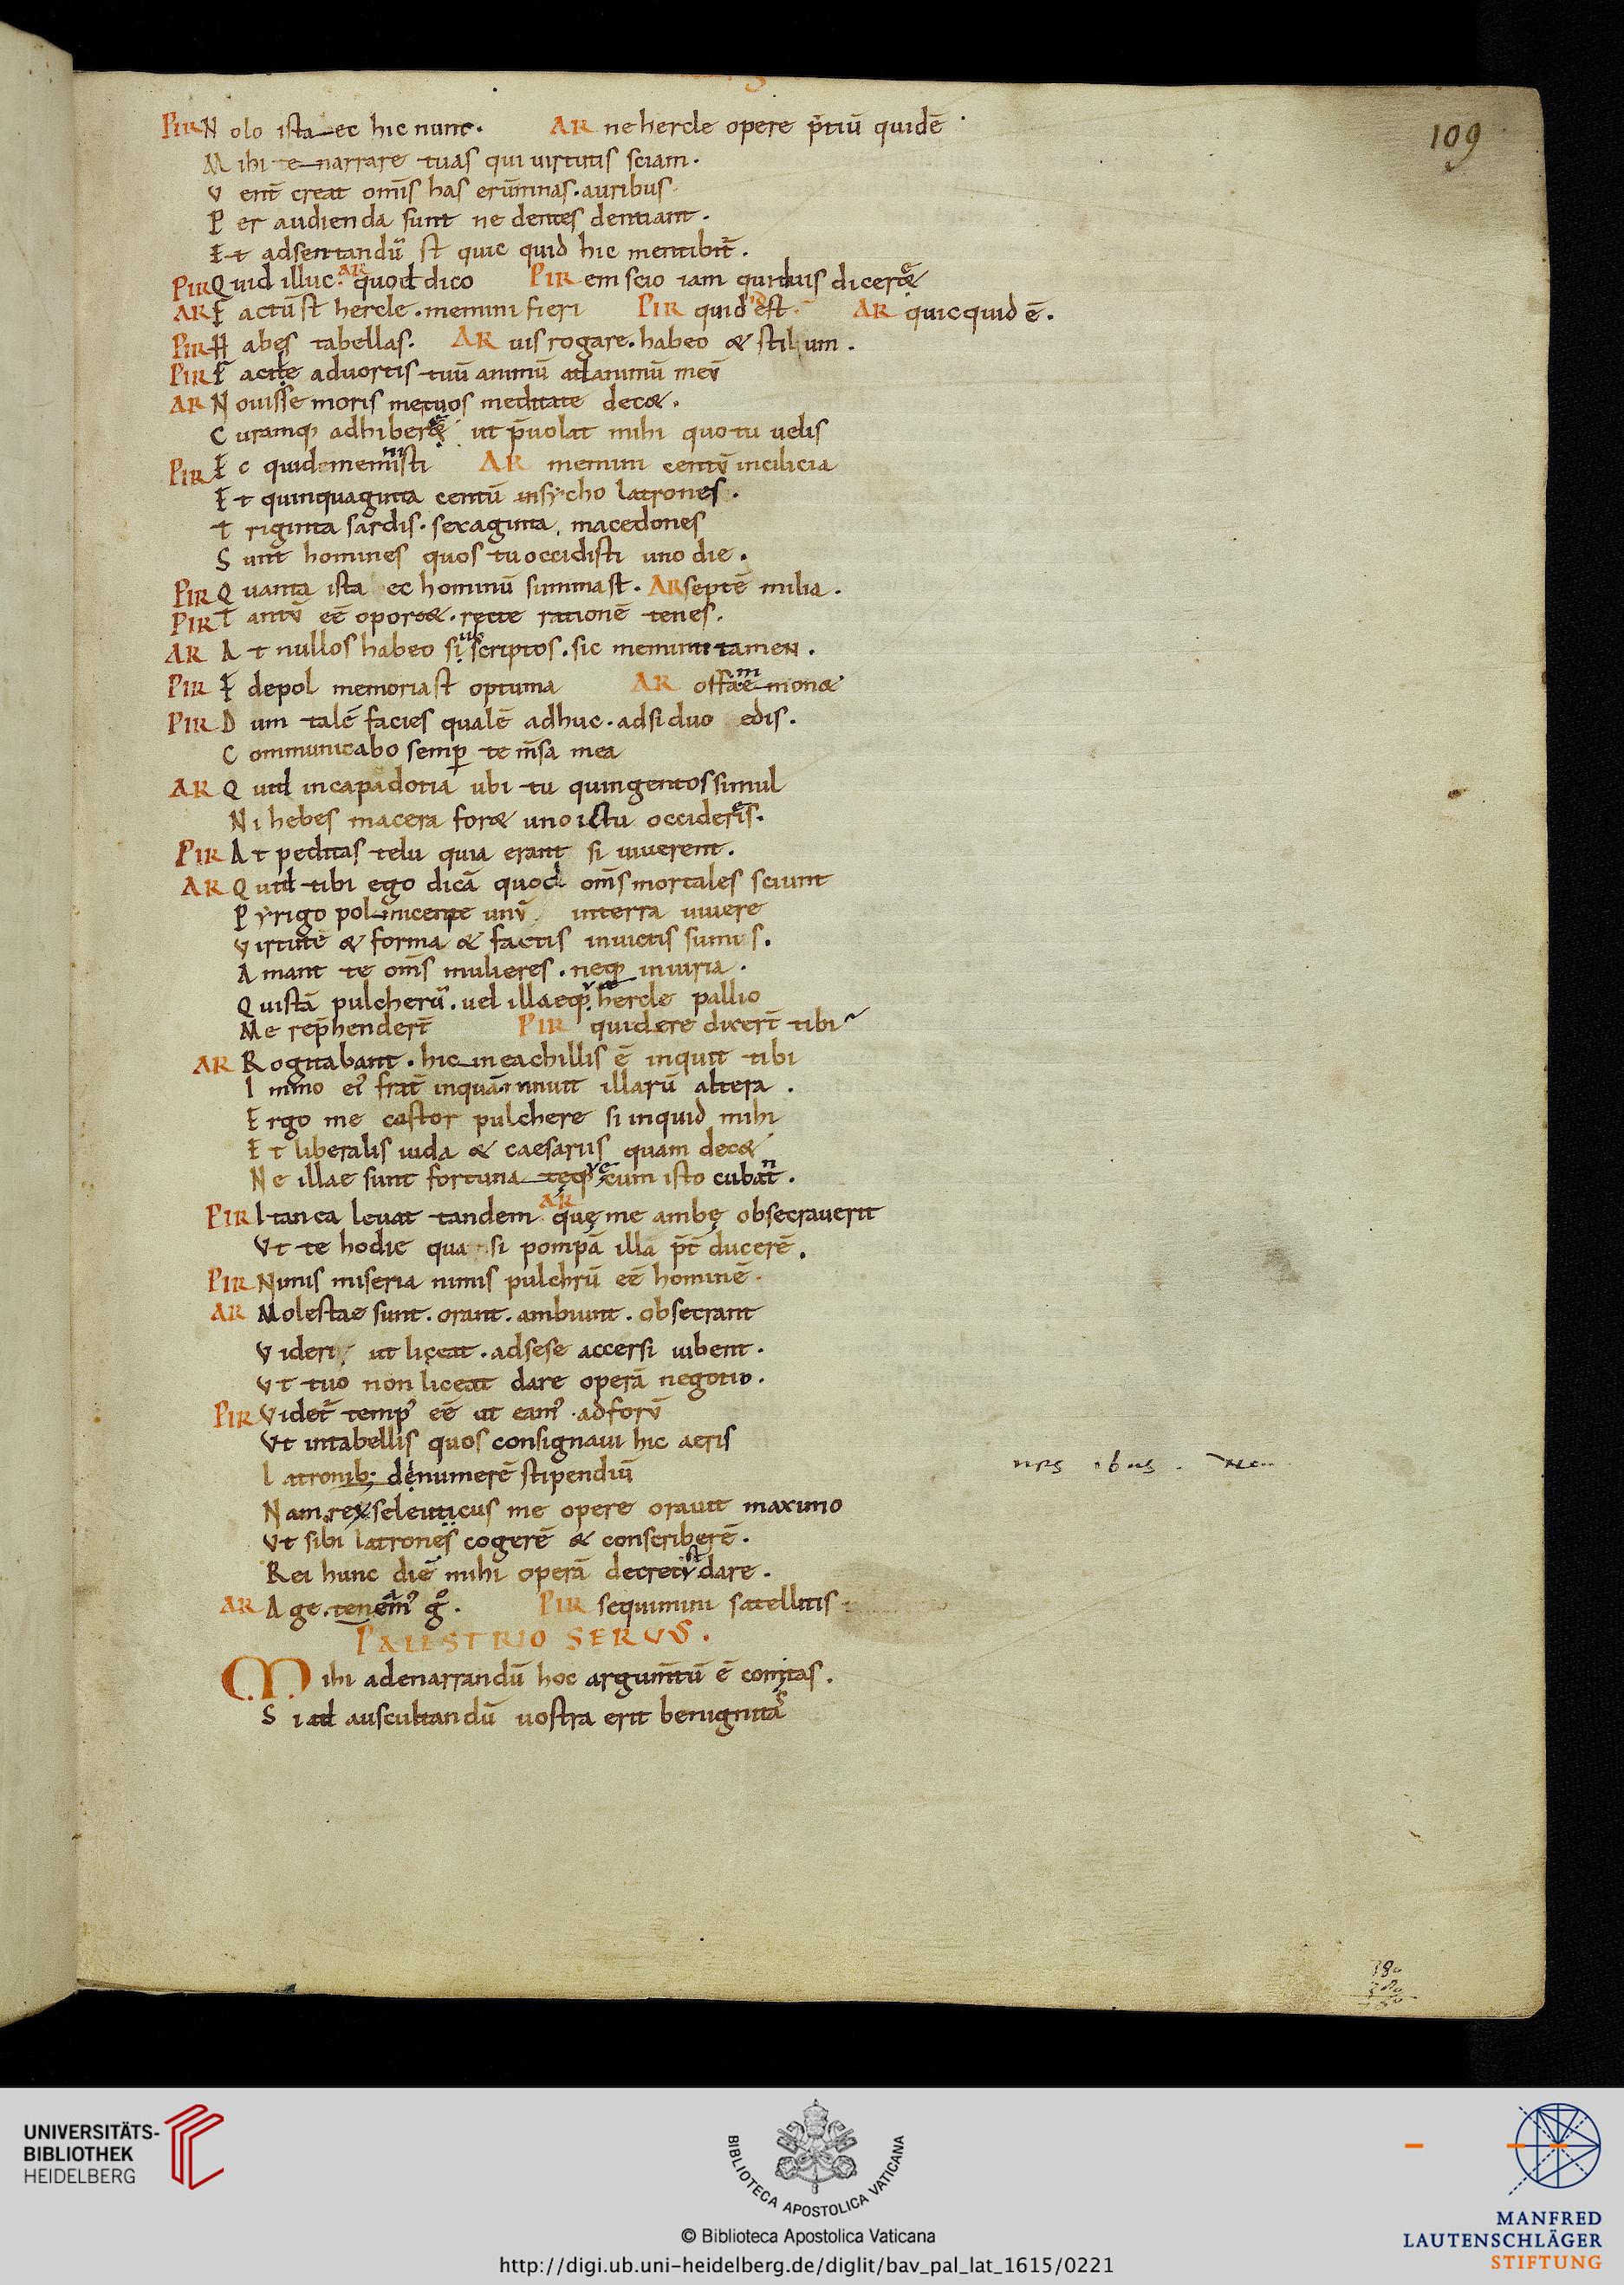 109
PIR N olo ista ec hic nunc. AR ne hercle opere p̄tiū quidē
M ihi te narrare tuas qui uirtutis sciam.
V ent̄ creat om̄is has erūmnas. auribus
P er audienda sunt ne dentes dentiant.
E t adsentandū st quic quid hic mentibit̄.
PIR Q uid illuc. AR quod dico PIR em scio iam dicere
AR F actūst hercle. memini fieri PIR quid id est. AR quicquid ē.
PIR H abes tabellas. AR uis rogare. habeo & stilum.
PIR F acite aduortis tuū animū ad animū meū
AR N ouisse moris me tuos meditate dec&.
C uramq; adhibere ut p̄uolat mihi quo tu uelis
PIR E c quid meministi AR memini centū in cilicia
E t quinquaginta centū in sycho latrones.
T riginta sardis. sexaginta macedones
S unt homines quos tu occidisti uno die.
PIR Q uanta ista ec hominū summast. AR septē milia.
PIR T antū eē opor&. recte rationē tenes.
AR A t nullos habeo scriptos. sic memini tamen.
PIR E depol memoriast optuma AR offae mon&
PIR D um talē facies qualē adhuc. adsiduo edis.
C ommunicabo semp te m̄sa mea
AR Q uid in capadotia ubi tu quingentos simul
N i hebes macera for& uno ictu occideris.
PIR A t peditas telu quia erant si uiuerent.
AR Q uid tibi ego dicā quod om̄s mortales sciunt
P yrigo polinicente unū in terra uiuere
V irtute & forma & factis inuictis sumus.
A mant te om̄s mulieres. neq; iniuria.
Q ui stā pulcherū. uel illaeq; hercle pallio
Me rep̄hendert̄ PIR quid ere dixert̄ tibi
AR R ogitabant. hicine achillis ē inquit tibi
I mmo ei' frat̄ inquā innuit illarū altera.
E rgo me castor pulchere si inquid mihi
E t liberalis uida & caesariis quam dec&
N e illae sunt fortuna teq; cum isto cubant.
PIR I tan ca leuat tandem AR quę me ambę obsecrauerit
Vt te hodie quasi pompā illā p̄t ducerē.
PIR Nimis miseria nimis pulchrū eē hominē.
AR Molestae sunt. orant. ambiunt. obsecrant
V ideri ut liceat. ad sese accersi iubent.
Vt tuo non liceat dare operā negotio.
PIR Videt̄ temp' eē ut eam' ad forū
Vt in tabellis quos consignaui hic aeris
l atronib; denumerē stipendiū
Nam rex seleuticus me opere orauit maximo
Vt sibi latrones cogerē & conscriberē.
Rei hunc diē mihi operā decretūst dare.
AR A ge. PIR sequimini satellitis
PALESTRIO SERVS.
M ihi ad enarrandū hoc argum̄tū ē comitas.
S i ad auscultandū uostra erit benignitas
UNIVERSITÄTS-
BIBLIOTHEK
HEIDELBERG
BIBLIOTECA APOSTOLICA VATICANA
© Biblioteca Apostolica Vaticana
http://digi.ub.uni-heidelberg.de/diglit/bav_pal_lat_1615/0221
MANFRED
LAUTENSCHLÄGER
STIFTUNG